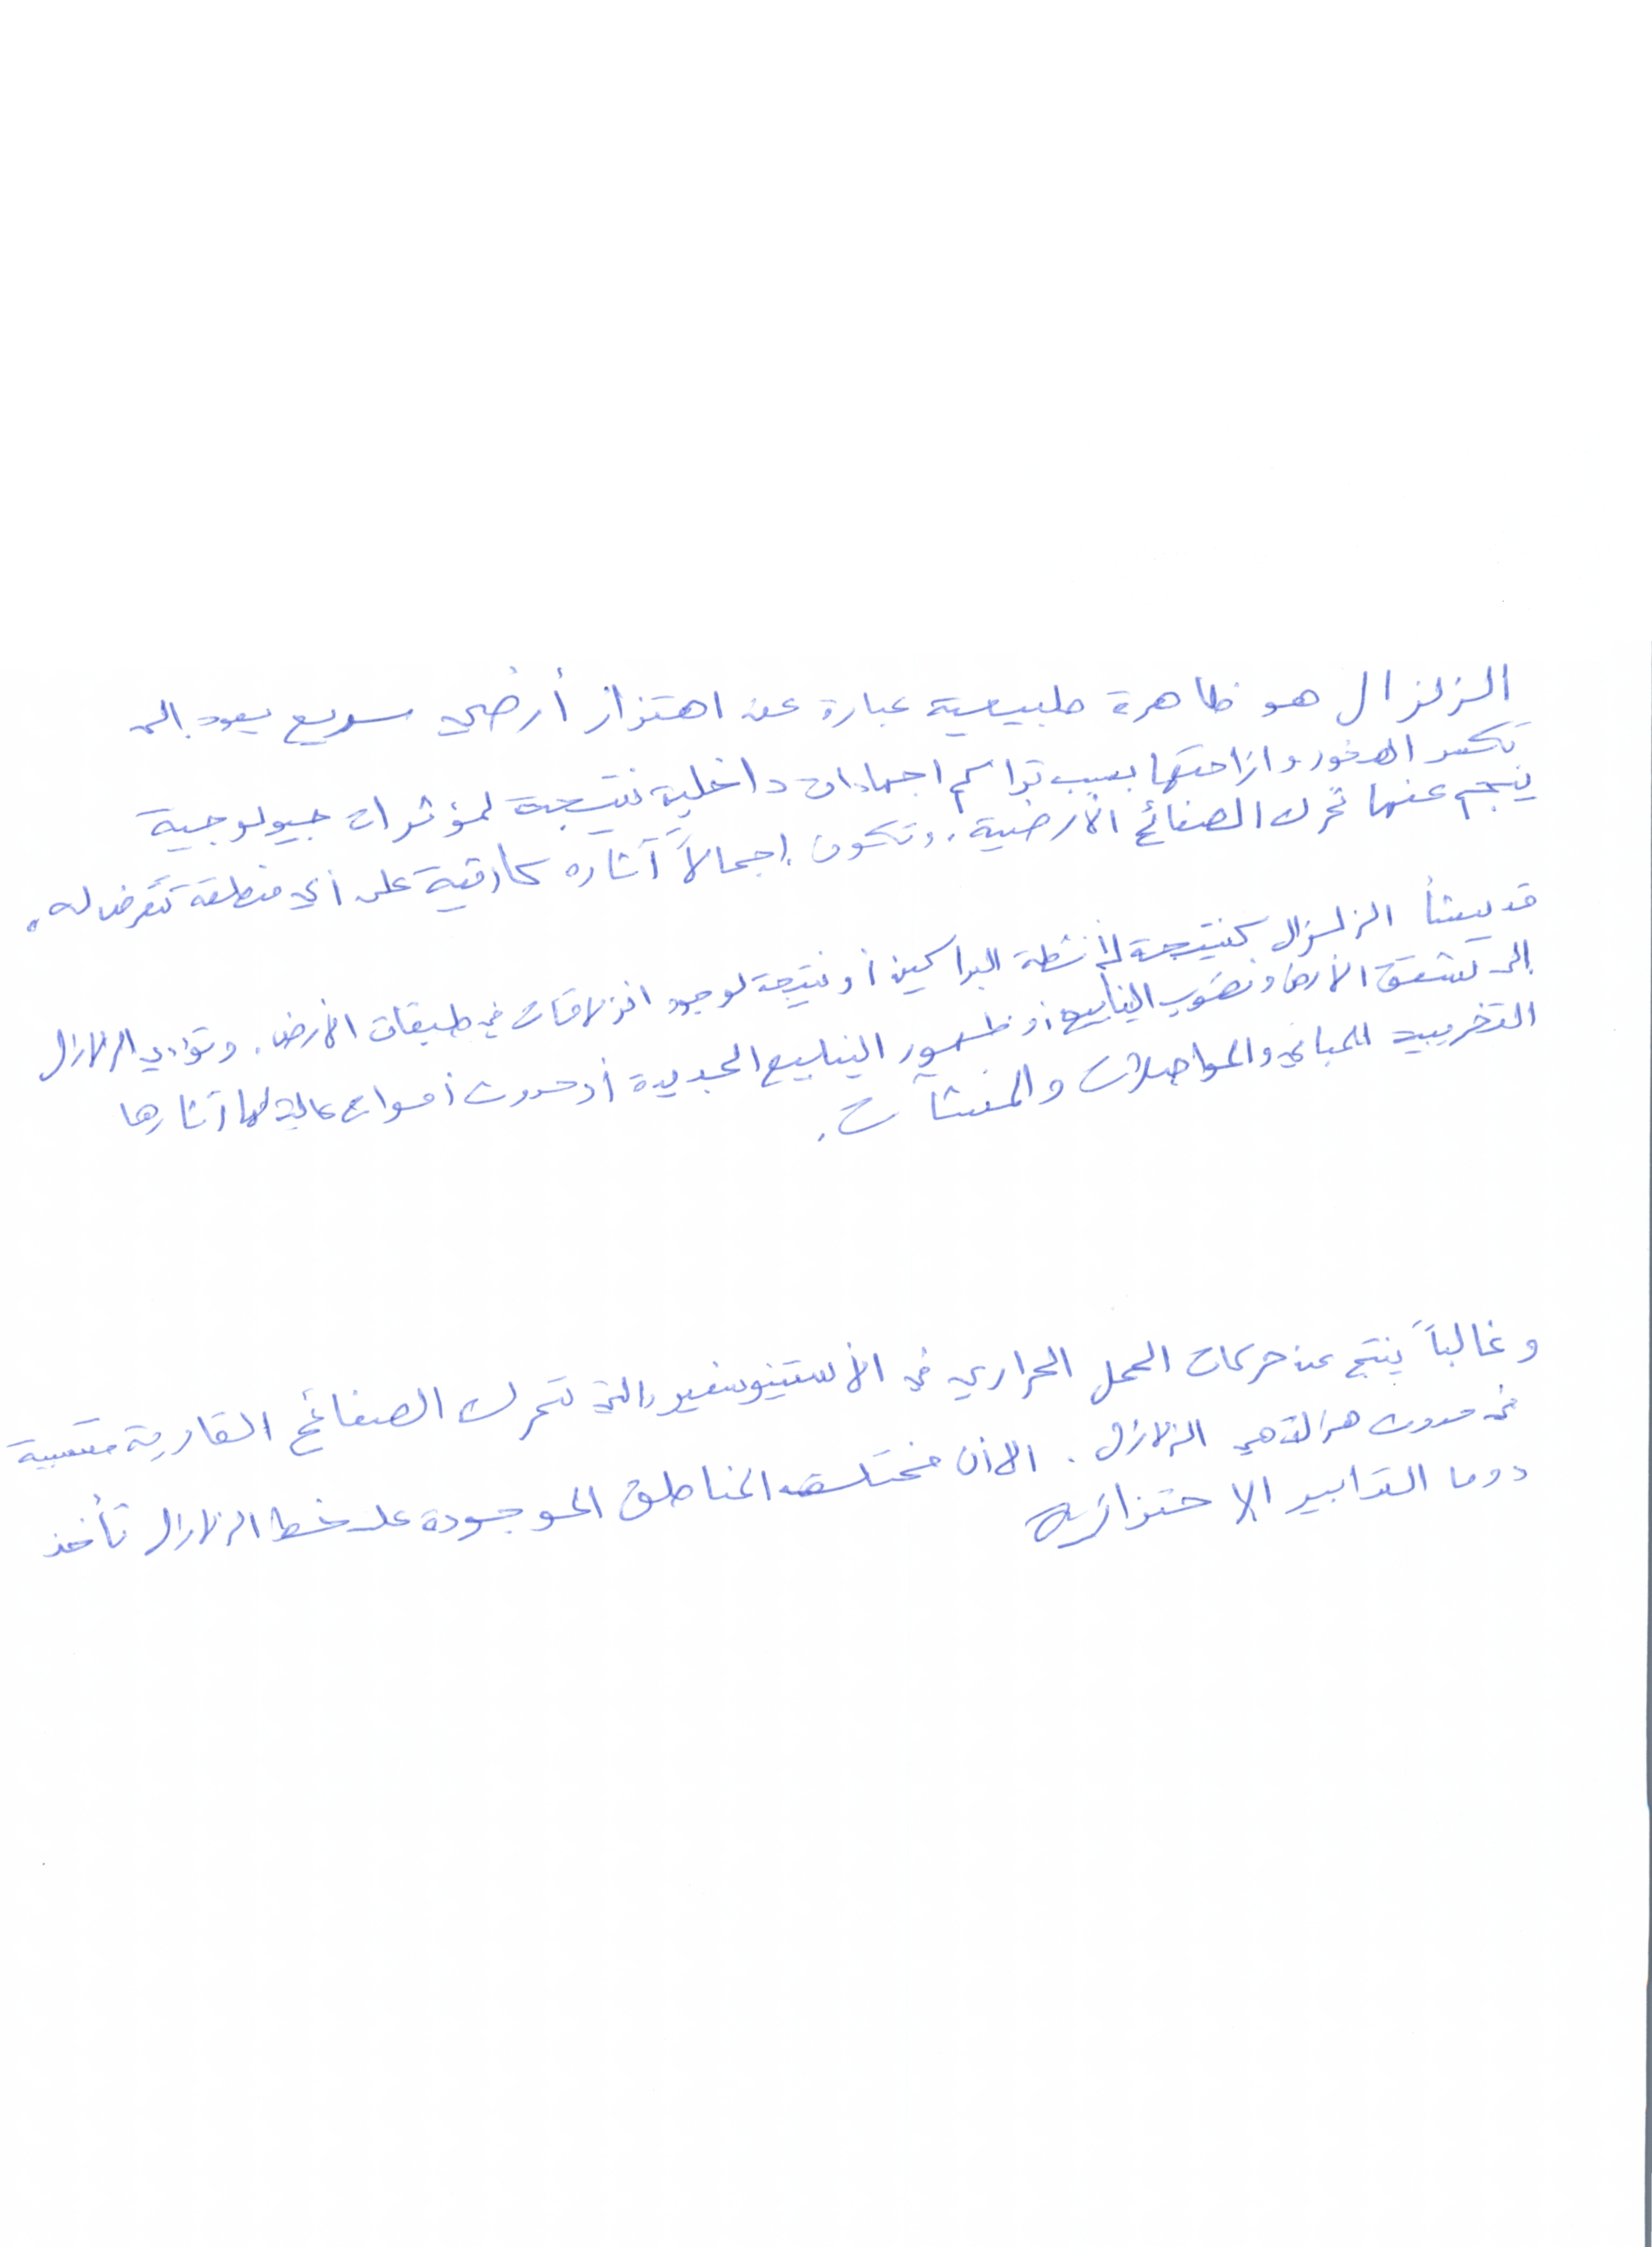 الزلزال هو ظاهرة طبيعية عبارة عن اهتزاز أرضي سريع يعود إلى
تكسر الصخور وازاحتها بسبب تراكم اجهادات داخلية نتيجة لمؤثرات جيولوجية
ينجم عنها تحرك الصفائح الأرضية. وتكون إجمالاً آثاره كارثية على أي منطقة تتعرض له.
قد ينشأ الزلزال كنتيجة لأنشطة البراكين أو نتيجة لوجود انزلاقات في طبقات الأرض. وتؤدي الزلازل
إلى تشقق الأرض ونضوب الينابيع أو ظهور الينابيع الجديدة أو حدوث أمواج عالية لها آثارها
التخريبية للمباني والمواصلات والمنشآت.
وغالباً ينتج عن حركات الحمل الحراري في الأستينوسفير والتي تحرك الصفائح القارية متسببة
في حدوث هزات هي الزلازل. الا أن مختلف المناطق الموجودة على خط الزلازل تأخذ
دوما التدابير الاحترازية